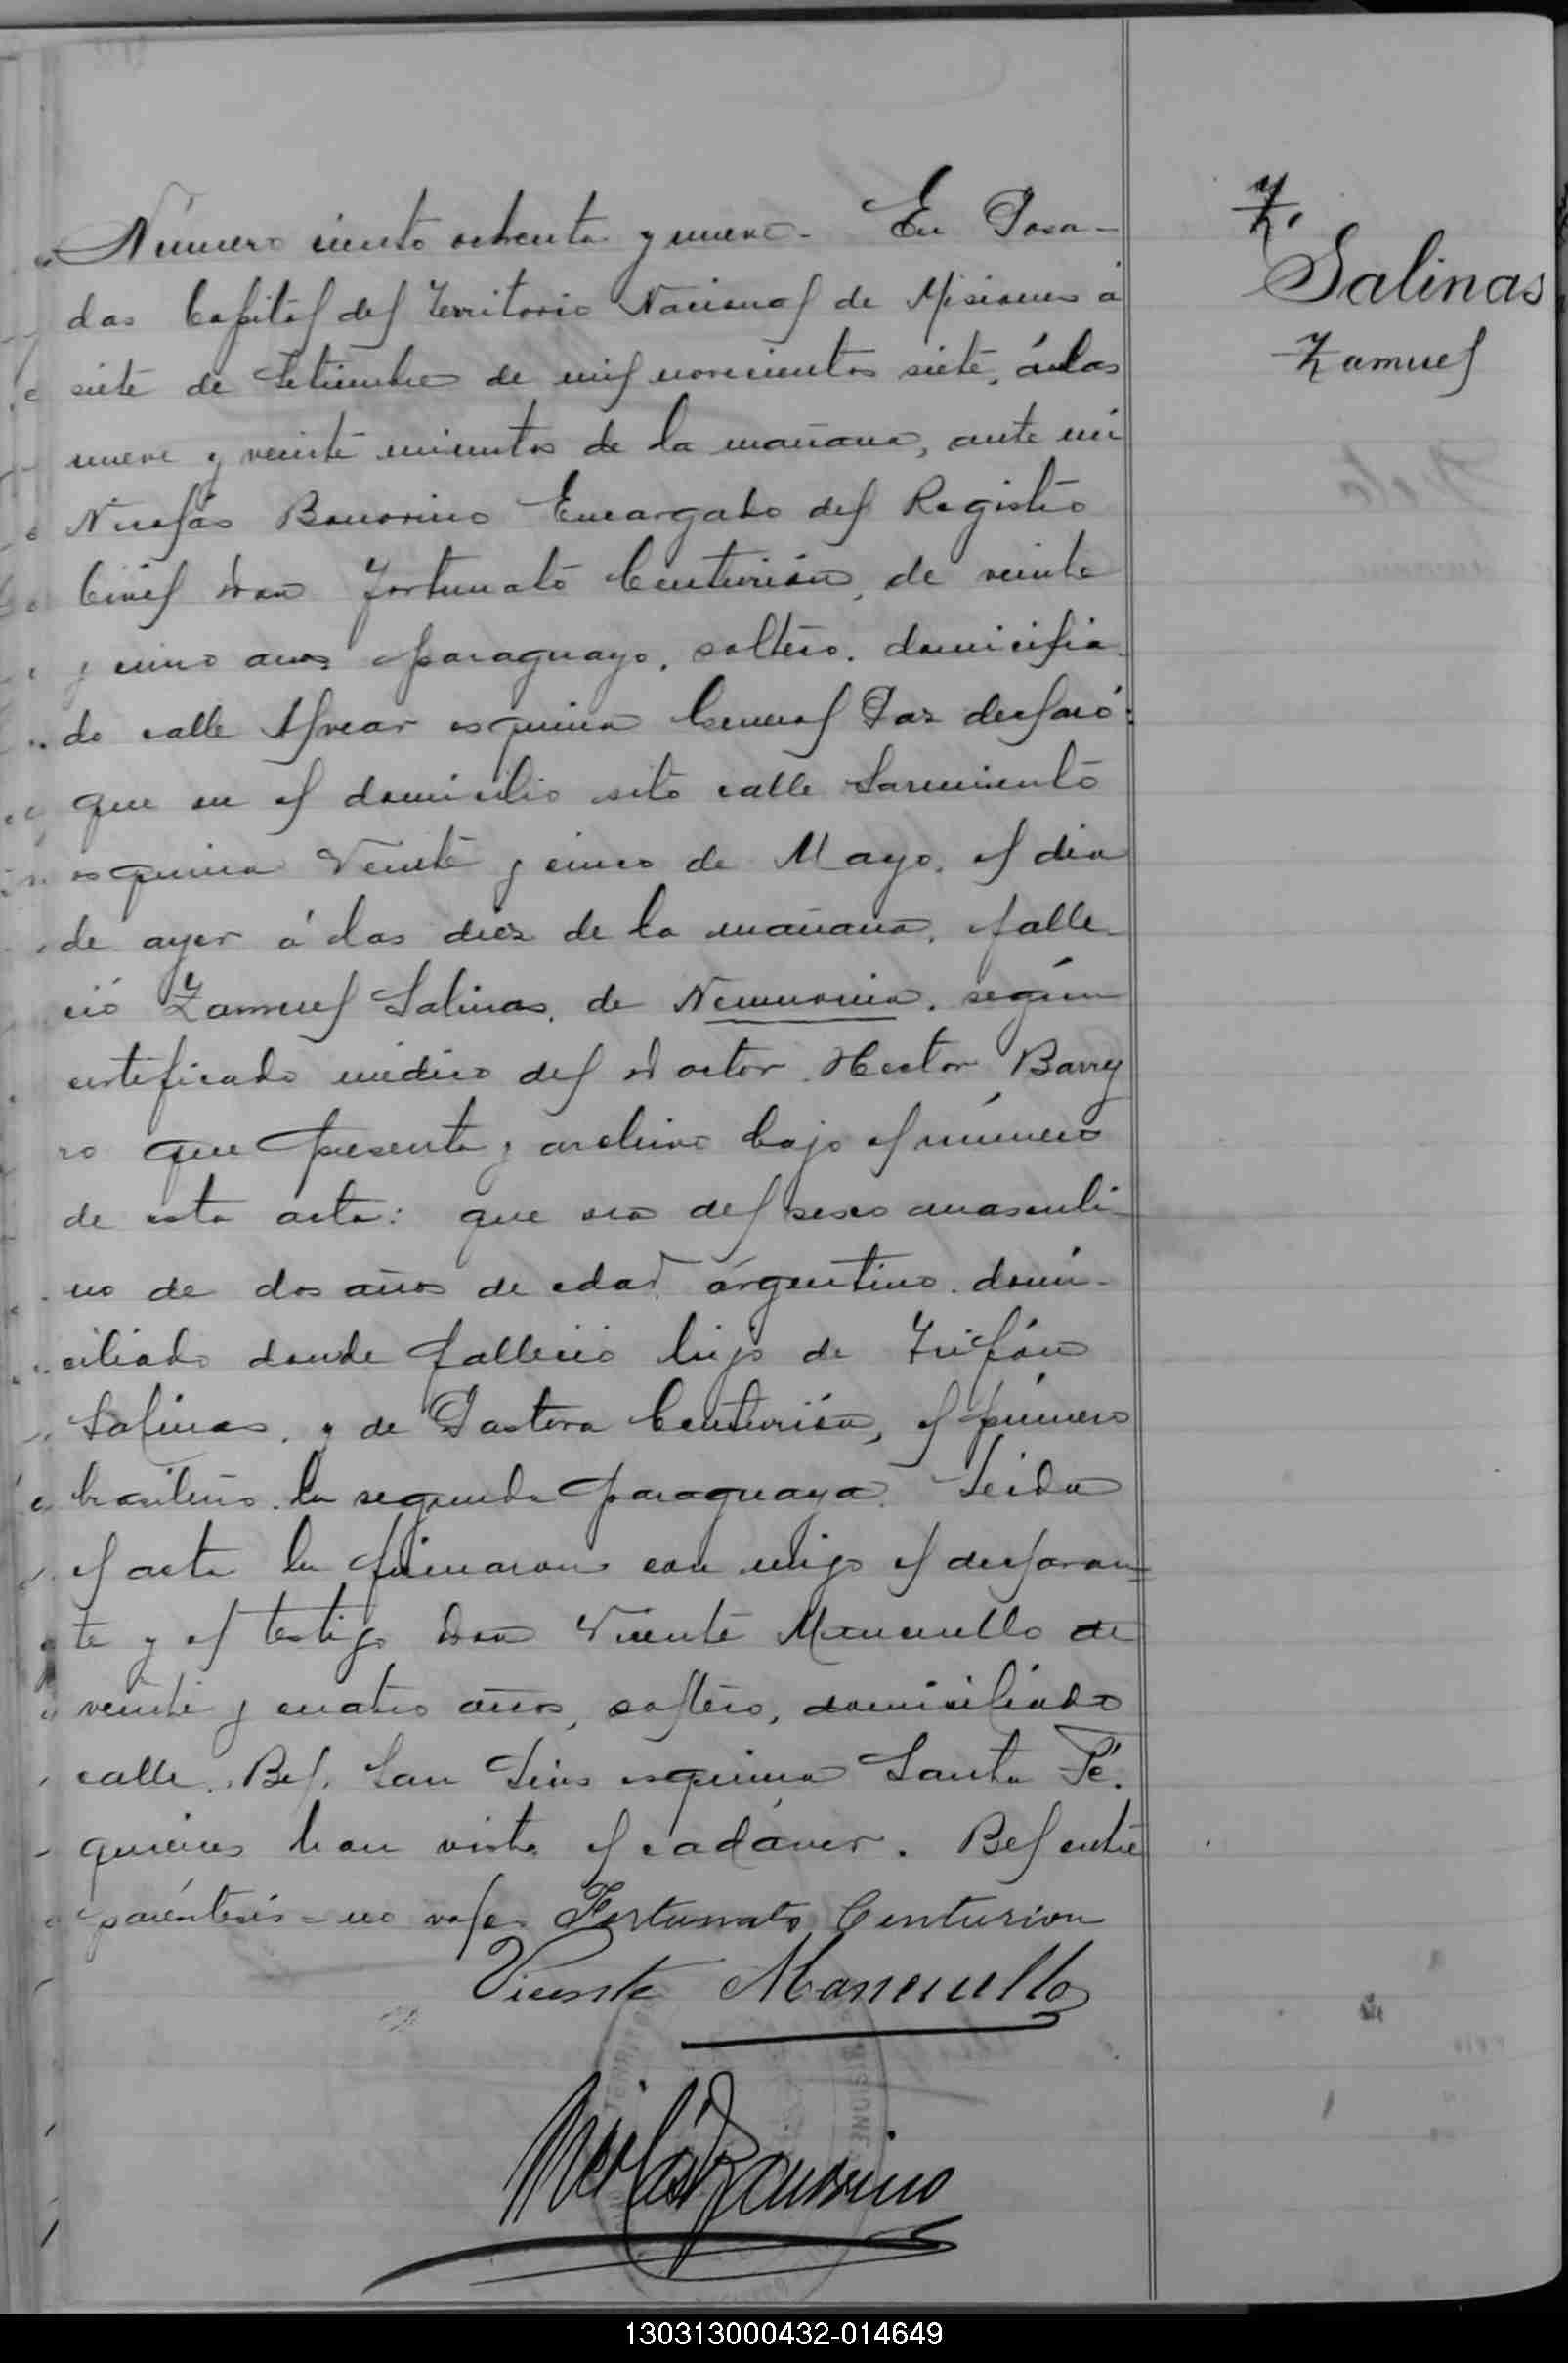 Z.
Salinas
Zamuel
Número ciento ochenta y nueve. En Posa-
das Capital del Territorio Nacional de Misiones á
siete de Setiembre de mil novecientos siete, á las
nueve y veinte minutos de la mañana, ante mí
Nicolás Bonorino Encargado del Registro
Civil don Fortunato Centurión, de veinte
y cinco años paraguayo, soltero, domicilia-
do calle Alvear esquina General Paz declaró:
que en el domicilio sito calle Sarmiento
esquina Veinte y cinco de Mayo, el dia
de ayer á las diez de la mañana, falle-
ció Zamuel Salinas, de Neumonia, según
certificado médico del doctor Hector Barrey
ro que presenta y archivo bajo el número
de esta acta: que era del sexo masculi-
no de dos años de edad, argentino, domi-
ciliado donde falleció hijo de Trifón
Salinas, y de Pastora Centurión, el primero
brasilero, la segunda paraguaya. Leida
el acta la firmaron con migo el declaran-
te y el testigo don Vicente Mancuello de
veinte y cuatro años, soltero, domiciliado
calle Bel. San Luis esquina Santa Fé.
quienes han visto el cadáver. Bel entre
paréntesis = no vale. Fortunato Centurion
Vicente Mancuello
Nicolás Bonorino
130313000432-014649